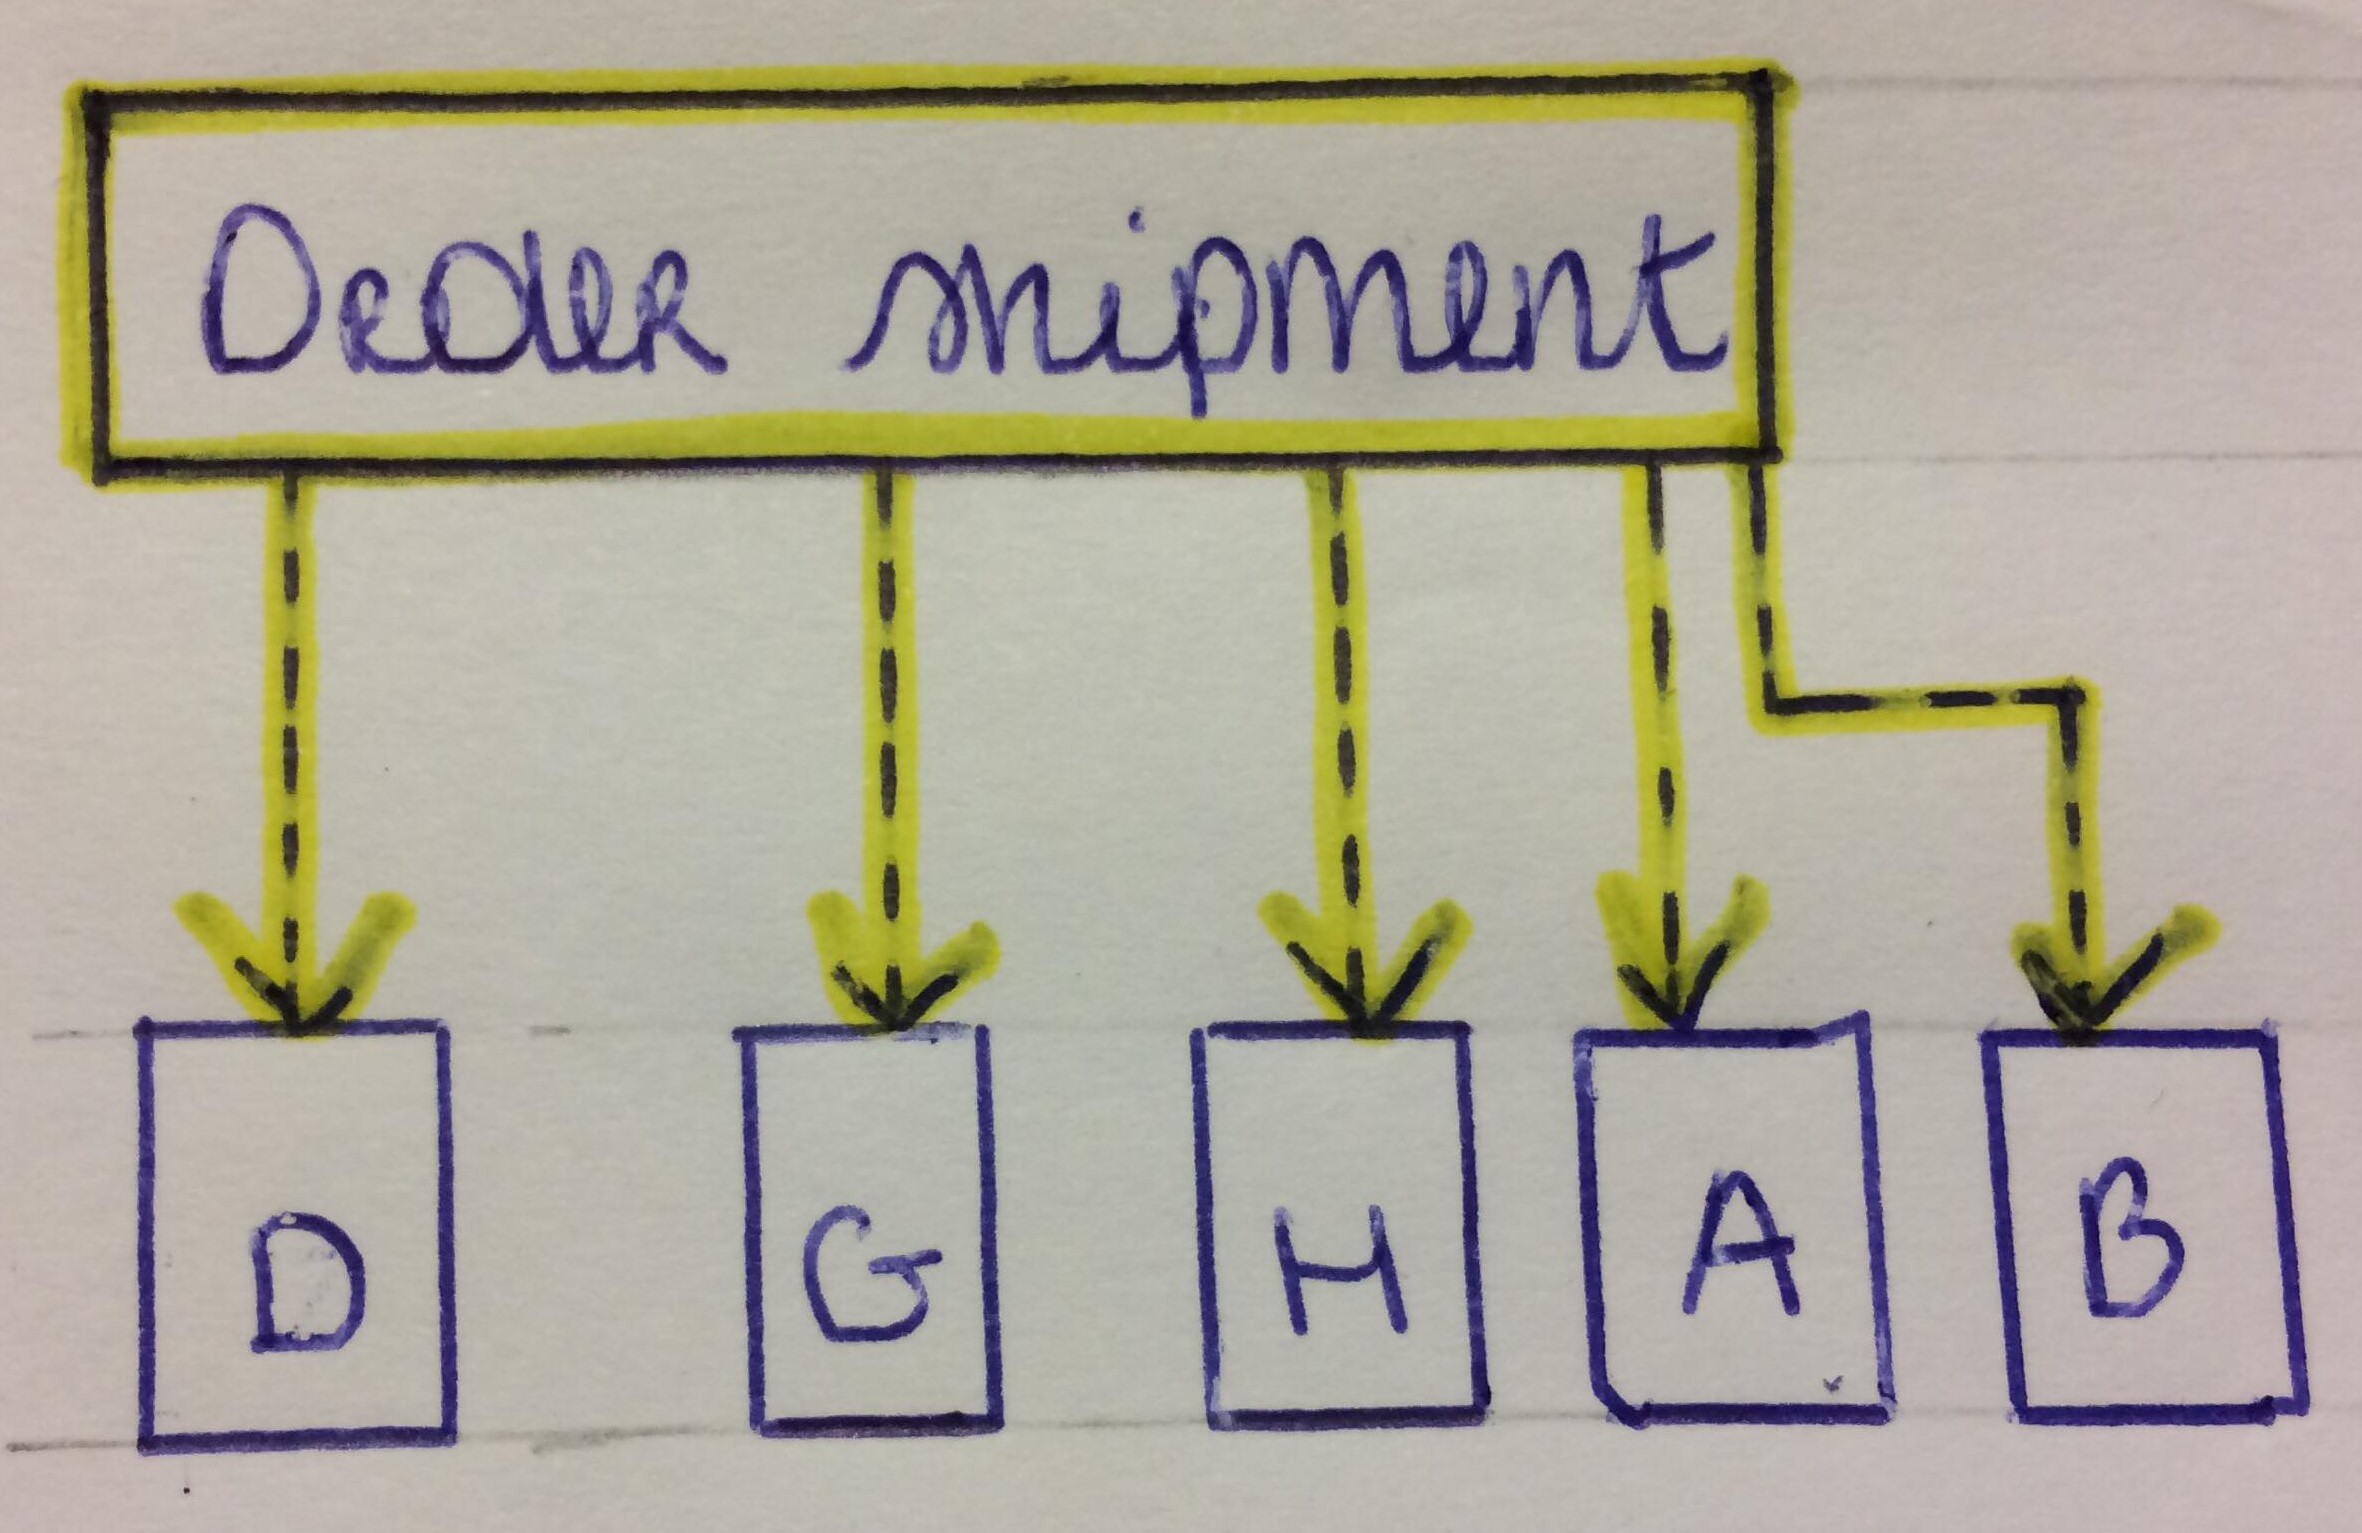 Order shipment
D G H A B